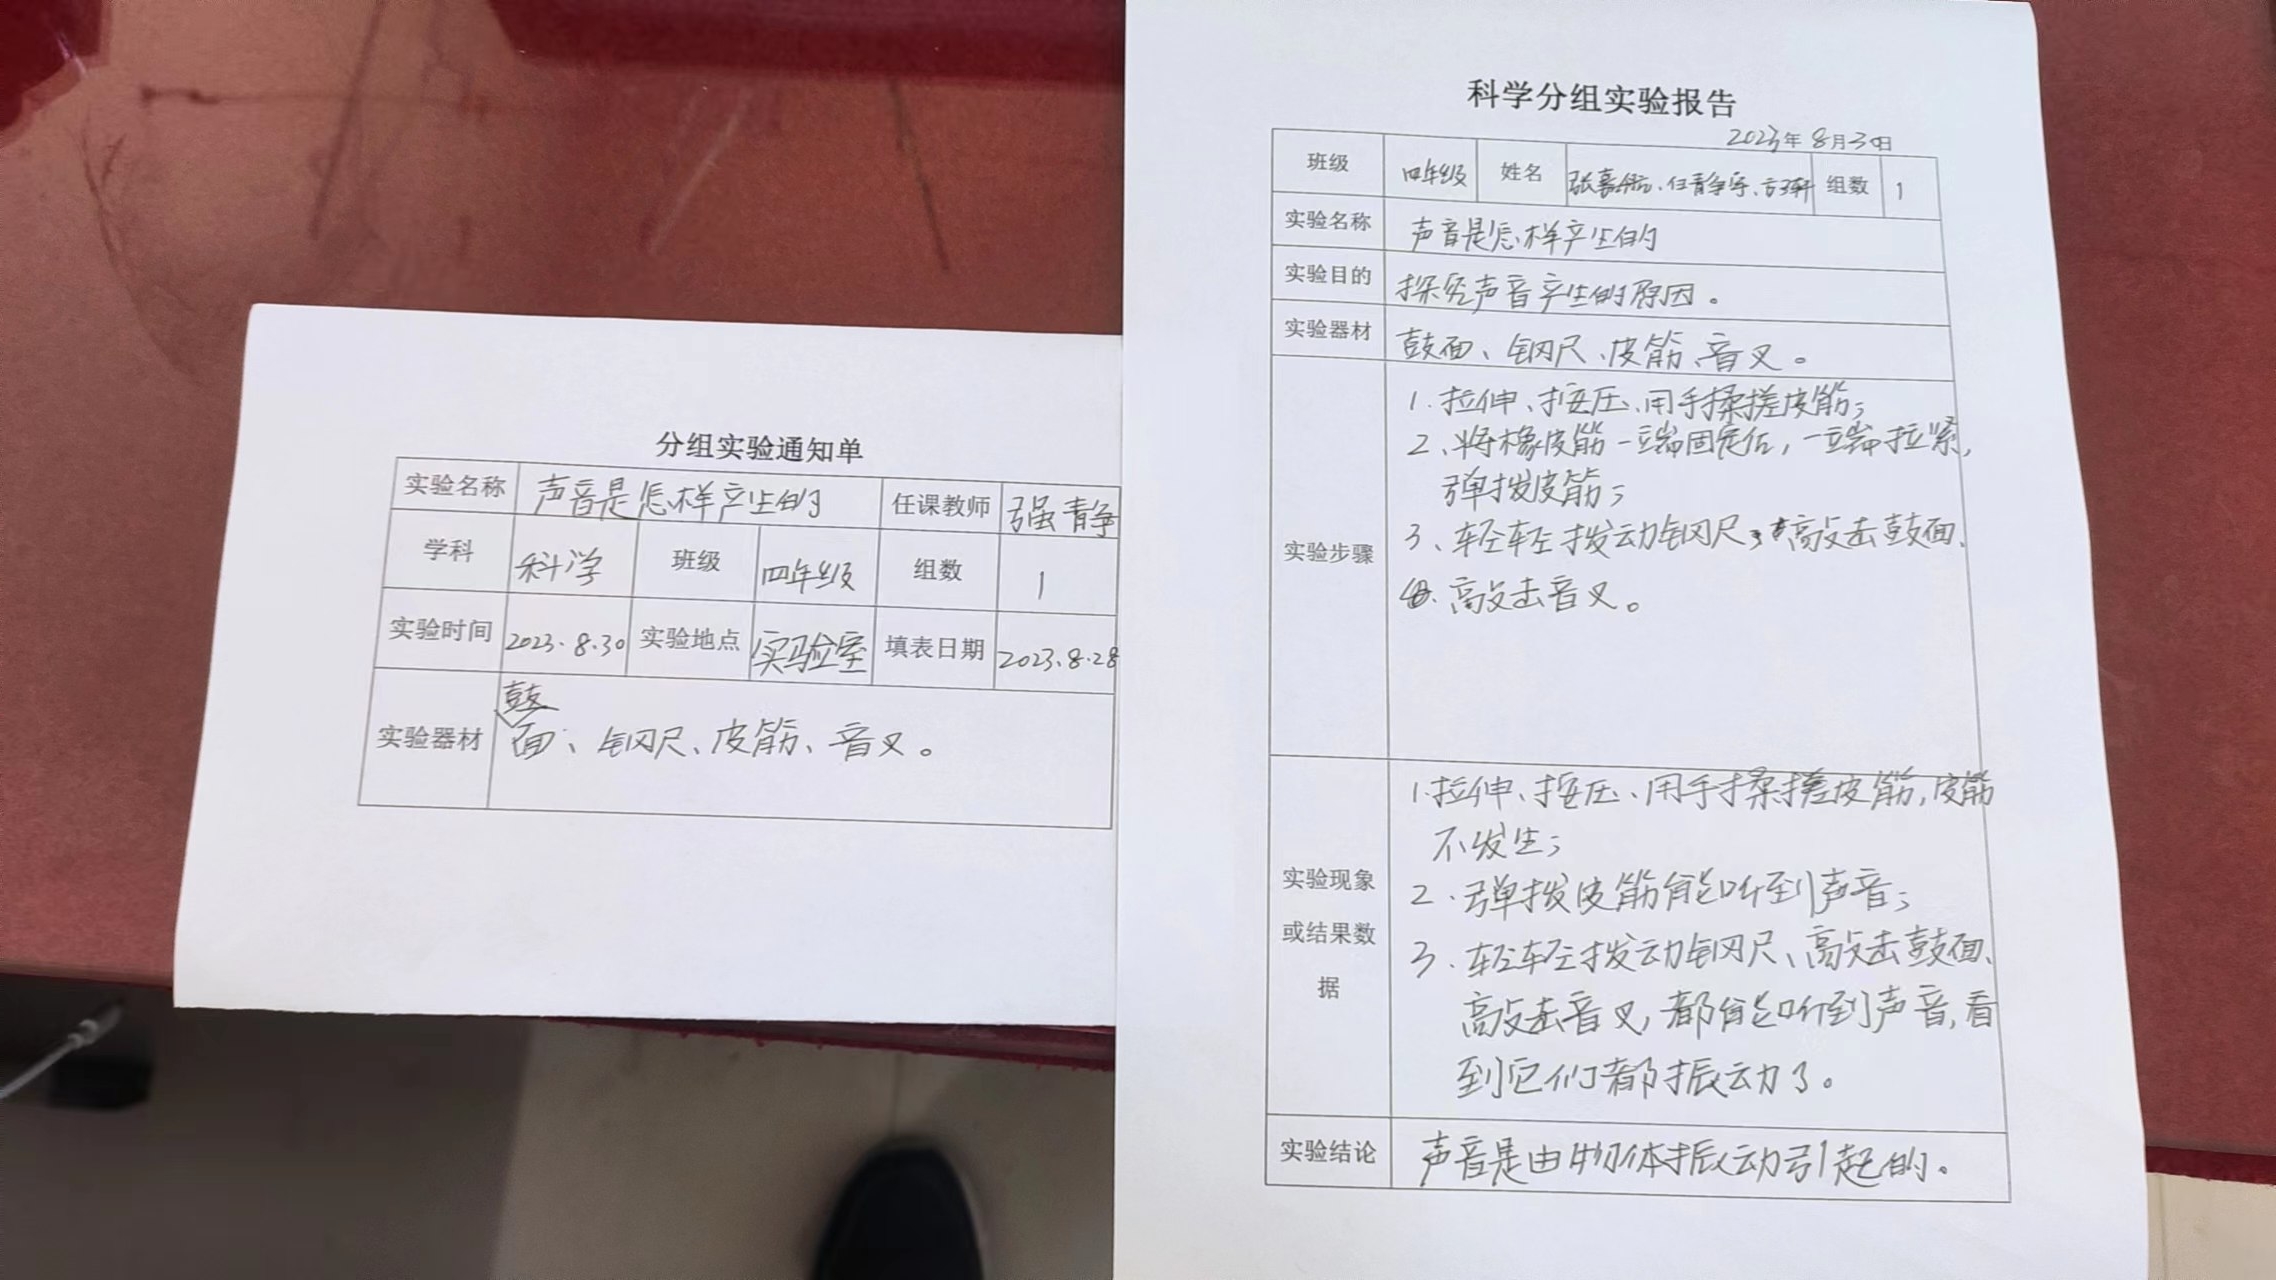 分组实验通知单
实验名称 声音是怎样产生的 任课教师 强静
学科 科学 班级 四年级 组数 1
实验时间 2023.8.30 实验地点 实验室 填表日期 2023.8.28
实验器材 鼓面、钢尺、皮筋、音叉。
科学分组实验报告
2023年8月30日
班级 四年级 姓名 组数 1
实验名称 声音是怎样产生的
实验目的 探究声音产生的原因。
实验器材 鼓面、钢尺、皮筋、音叉。
实验步骤
1.拉伸、按压、用手揉搓皮筋;
2、将橡皮筋一端固定后,一端拉紧,
弹拨皮筋;
3、轻轻拨动钢尺、敲击鼓面、
敲击音叉。
实验现象
或结果数
据
1.拉伸、按压、用手揉搓皮筋,皮筋
不发生;
2.弹拨皮筋能听到声音;
3.轻轻拨动钢尺、敲击鼓面、
敲击音叉,都能听到声音,看
到它们都振动了。
实验结论 声音是由物体振动引起的。